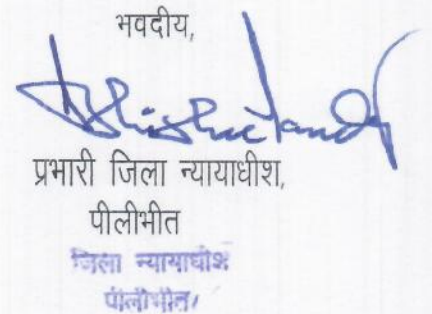 भवदीय,
प्रभारी जिला न्यायाधीश,
पीलीभीत
जिला न्यायाधीश
पीलीभीत।